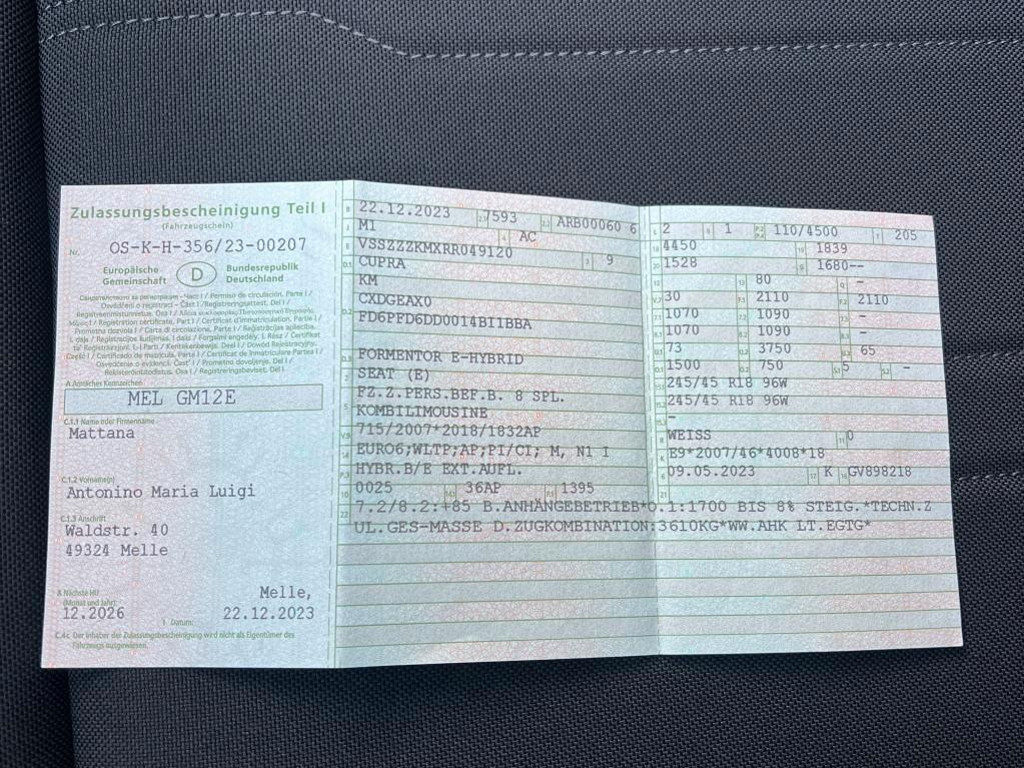 Zulassungsbescheinigung Teil I
(Fahrzeugschein)
Nr. OS-K-H-356/23-00207
Europäische Gemeinschaft
D
Bundesrepublik Deutschland
A Amtliches Kennzeichen
MEL GM12E
C.1.1 Name oder Firmenname
Mattana
C.1.2 Vorname(n)
Antonino Maria Luigi
C.1.3 Anschrift
Waldstr. 40
49324 Melle
Nächste HU
(Monat und Jahr)
12.2026
Melle,
I Datum: 22.12.2023
C.4c Der Inhaber der Zulassungsbescheinigung wird nicht als Eigentümer des
Fahrzeugs ausgewiesen.
B 22.12.2023 2.1 7593 2.2 ARB00060 6
J M1 4 AC
E VSSZZZKMXRR049120 3 9
D.1 CUPRA
KM
D.2 CXDGEAX0
FD6PFD6DD0014BI1BBA
D.3 FORMENTOR E-HYBRID
2 SEAT (E)
5 FZ.Z.PERS.BEF.B. 8 SPL.
KOMBILIMOUSINE
V.9 715/2007*2018/1832AP
14 EURO6;WLTP;AP;PI/CI; M, N1 I
P.3 HYBR.B/E EXT.AUFL.
10 0025 14.1 36AP P.1 1395
22 7.2/8.2:+85 B.ANHÄNGEBETRIEB*O.1:1700 BIS 8% STEIG.*TECHN.Z
UL.GES-MASSE D.ZUGKOMBINATION:3610KG*WW.AHK LT.EGTG*
L 2 9 1 P.2 P.4 110/4500 T 205
18 4450 19 1839
20 1528 G 1680--
12 13 80 Q -
V.7 30 F.1 2110 F.2 2110
7.1 1070 7.2 1090 7.3 -
8.1 1070 8.2 1090 8.3 -
U.1 73 U.2 3750 U.3 65
O.1 1500 O.2 750 S.1 5 S.2 -
15.1 245/45 R18 96W
15.2 245/45 R18 96W
15.3 -
R WEISS 11 0
K E9*2007/46*4008*18
6 09.05.2023 17 K 16 GV898218
21